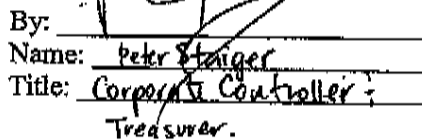 By:
Name: Peter Staiger
Title: Corporate Controller;
Treasurer.